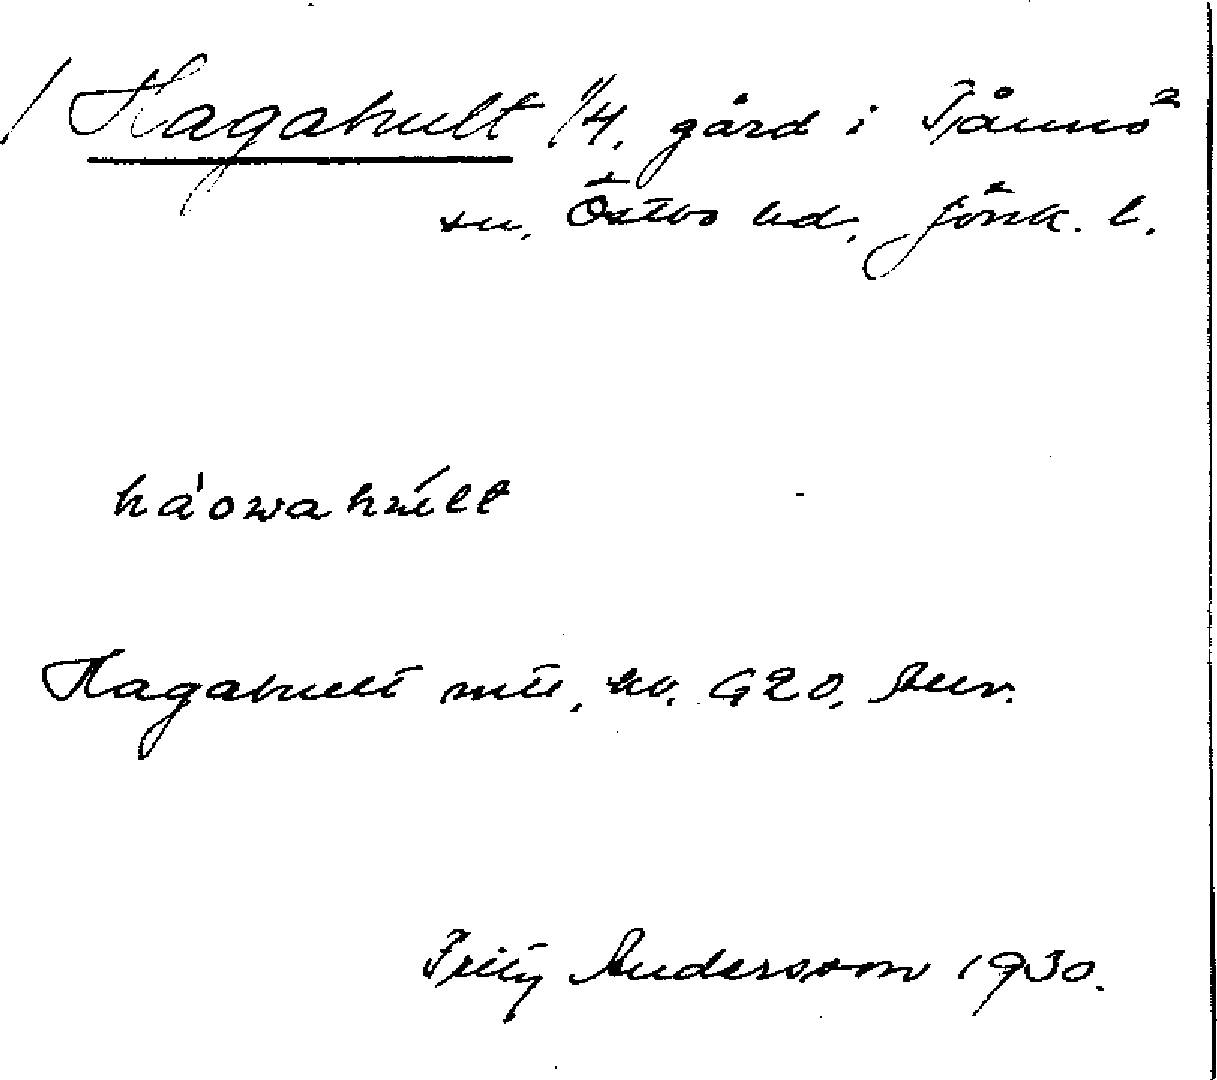 / Hagahult 1/4. gård i Tånnö
sn. Östbo hd. Jönk. l.
háowahult
Hagahult mtl, kv. G20,
Fritz Andersson 1930.